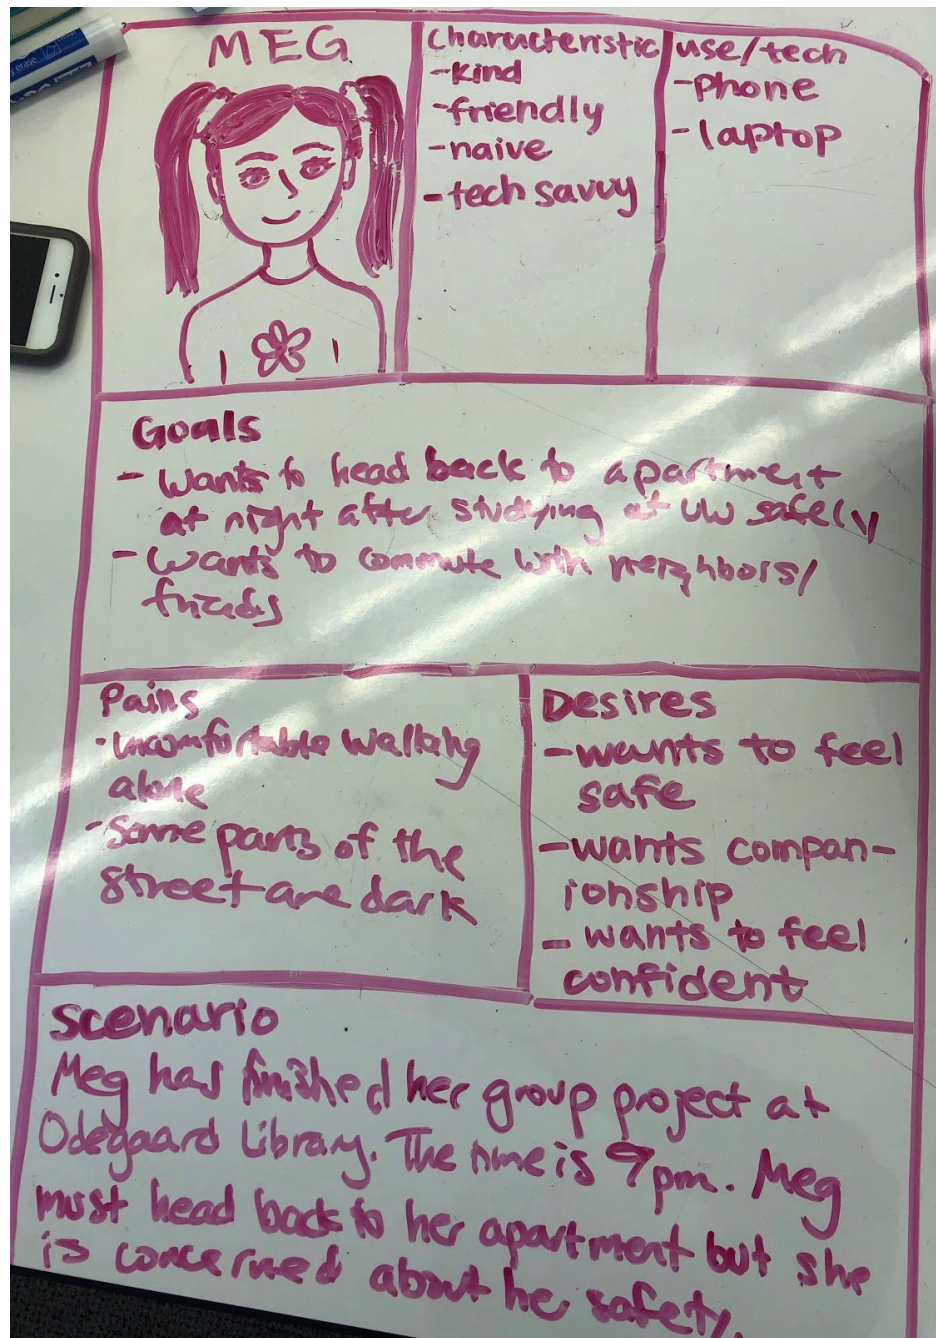 MEG
Characteristic
-kind
-friendly
-naive
-tech savvy
use/tech
-phone
-laptop
Goals
- Wants to head back to apartment
at night after studying at UW safely
- Wants to commute with neighbors/
friends
Pains
-uncomfortable walking
alone
-Some parts of the
street are dark
Desires
-wants to feel
safe
-wants compan-
ionship
- wants to feel
confident
Scenario
Meg has finished her group project at
Odegaard Library. The time is 9pm. Meg
must head back to her apartment but she
is concerned about he safety.